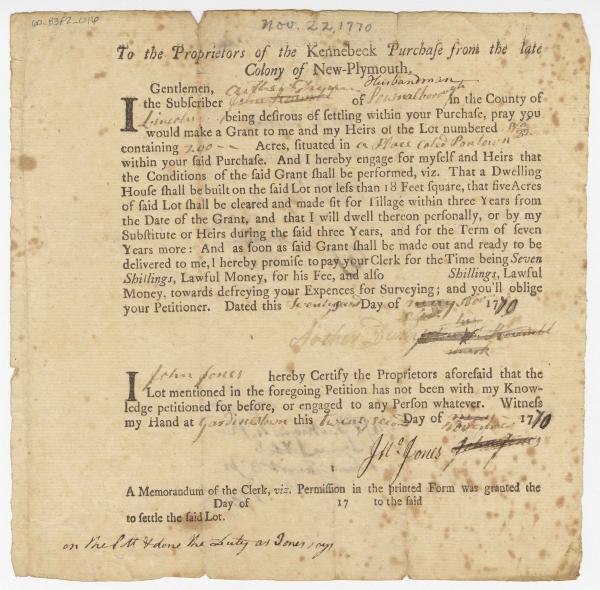 60_B3F2_016
Nov. 22, 1770
To the Proprietors of the Kennebeck Purchaſe from the late
Colony of New-Plymouth.
Gentlemen, Husbandman
I the Subſcriber of Pownalborough in the County of
Lincoln being deſirous of settling within your Purchaſe, pray you
would make a Grant to me and my Heirs of the Lot numbered
containing 200 Acres, ſituated in a Place Caled
within your ſaid Purchaſe. And I hereby engage for myſelf and Heirs that
the Conditions of the ſaid Grant ſhall be performed, viz. That a Dwelling
Houſe ſhall be built on the ſaid Lot not leſs than 18 Feet ſquare, that five Acres
of ſaid Lot ſhall be cleared and made fit for Tillage within three Years from
the Date of the Grant, and that I will dwell thereon perſonally, or by my
Subſtitute or Heirs during the ſaid three Years, and for the Term of ſeven
Years more: And as ſoon as ſaid Grant ſhall be made out and ready to be
delivered to me, I hereby promiſe to pay your Clerk for the Time being Seven
Shillings, Lawful Money, for his Fee, and alſo Shillings, Lawful
Money, towards defreying your Expences for Surveying; and you'll oblige
your Petitioner. Dated this Day of 1770
his
mark
I John Jones hereby Certify the Proprietors aforeſaid that the
Lot mentioned in the foregoing Petition has not been with my Know-
ledge petitioned for before, or engaged to any Perſon whatever. Witneſs
my Hand at this Day of 1770
Jno. Jones John Jones
A Memorandum of the Clerk, viz. Permiſſion in the printed Form was granted the
Day of 17 to the ſaid
to ſettle the ſaid Lot.
on the & done the Duty as Jones says